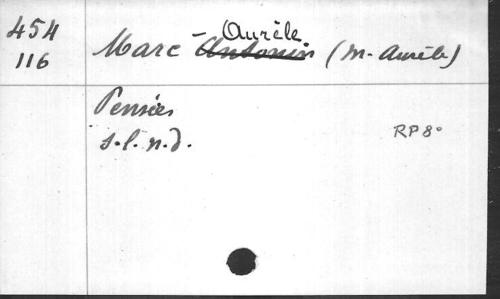 454
116
Marc-Aurèle Antonin (M. Aurèle)
Pensées
s.l.n.d.
RP 8°